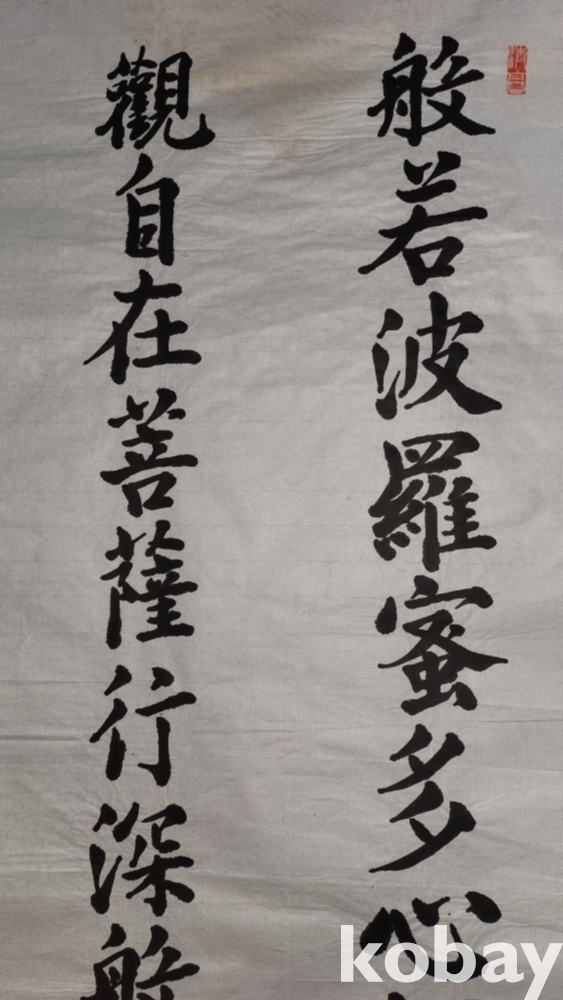 般若波羅蜜多心
觀自在菩薩行深般
kobay